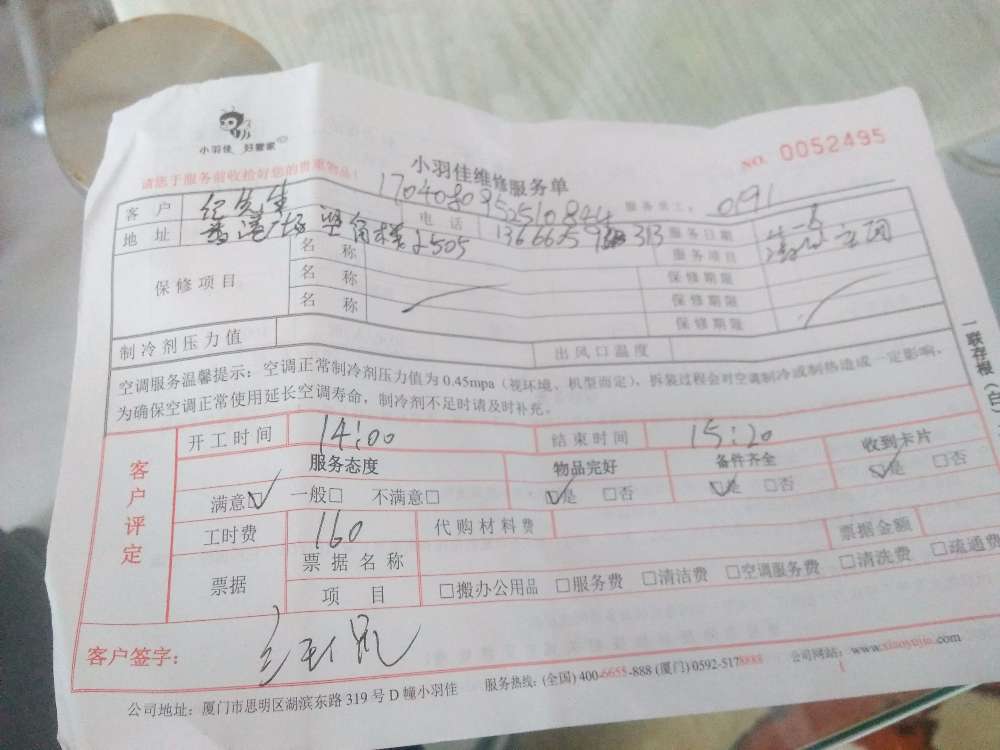 小羽佳 好管家
NO. 0052495
请您于服务前收捡好您的贵重物品!
小羽佳维修服务单
1704080952510844
服务员工: 0191
客户 纪先生 电话 服务日期
地址 2505 服务项目
保修项目 名称 保修期限
名称 保修期限
名称 保修期限
制冷剂压力值 出风口温度
空调服务温馨提示: 空调正常制冷剂压力值为0.45mpa (视环境、机型而定), 拆装过程会对空调制冷或制热造成一定影响,
为确保空调正常使用延长空调寿命, 制冷剂不足时请及时补充。
一联存根(白)
客户评定
开工时间 14:00 结束时间 15:20
服务态度 物品完好 备件齐全 收到卡片
满意☑ 一般□ 不满意□ ☑是 □否 ☑是 □否 ☑是 □否
工时费 160 代购材料费 票据金额
票据 票据名称
项目 □搬办公用品 □服务费 □清洁费 □空调服务费 □清洗费 □疏通费
客户签字:
公司地址: 厦门市思明区湖滨东路319号D幢小羽佳 服务热线: (全国) 400-6655-888 (厦门) 0592-5178888 公司网站: www.xiaoyujia.com